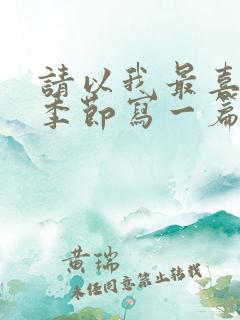 請以我最喜
季節寫一篇
黄瑞
未经同意禁止转载